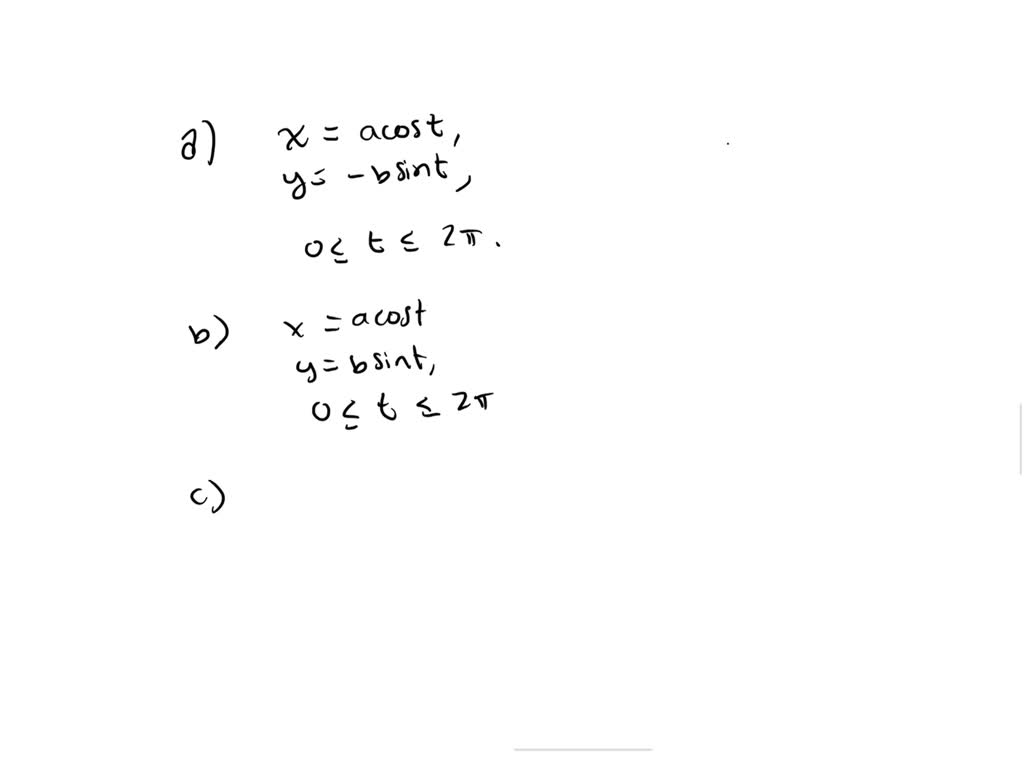 a) x = acost,
y = -bsint,
0 ≤ t ≤ 2π.
b) x = acost
y = bsint,
0 ≤ t ≤ 2π
c)